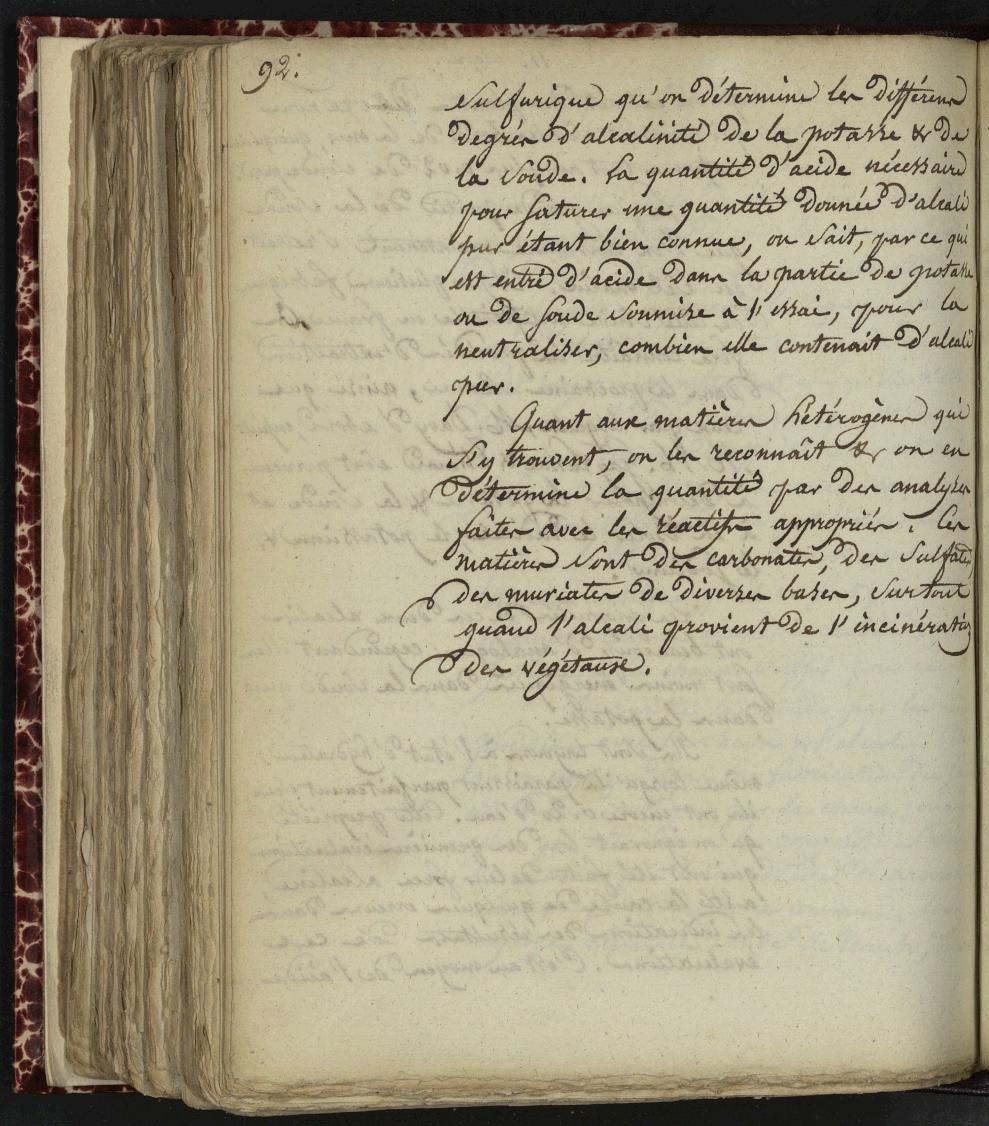 92.
Sulfurique qu'on détermine les différens
degrés d'alcalinité de la potasse & de
la soude. La quantité d'acide nécessaire
pour saturer une quantité donnée d'alcali
pur étant bien connue, on sait, par ce qui
est entré d'acide dans la partie de potasse
ou de soude soumise à l'essai, pour la
neutraliser, combien elle contenait d'alcali
pur.
Quant aux matières hétérogènes qui
s'y trouvent, on les reconnaît & on en
détermine la quantité par des analyses
faites avec les réactifs appropriés. Ces
matières sont des carbonates, des sulfates,
des muriates de diverses bases, surtout
quand l'alcali provient de l'incinération
des végétaux.